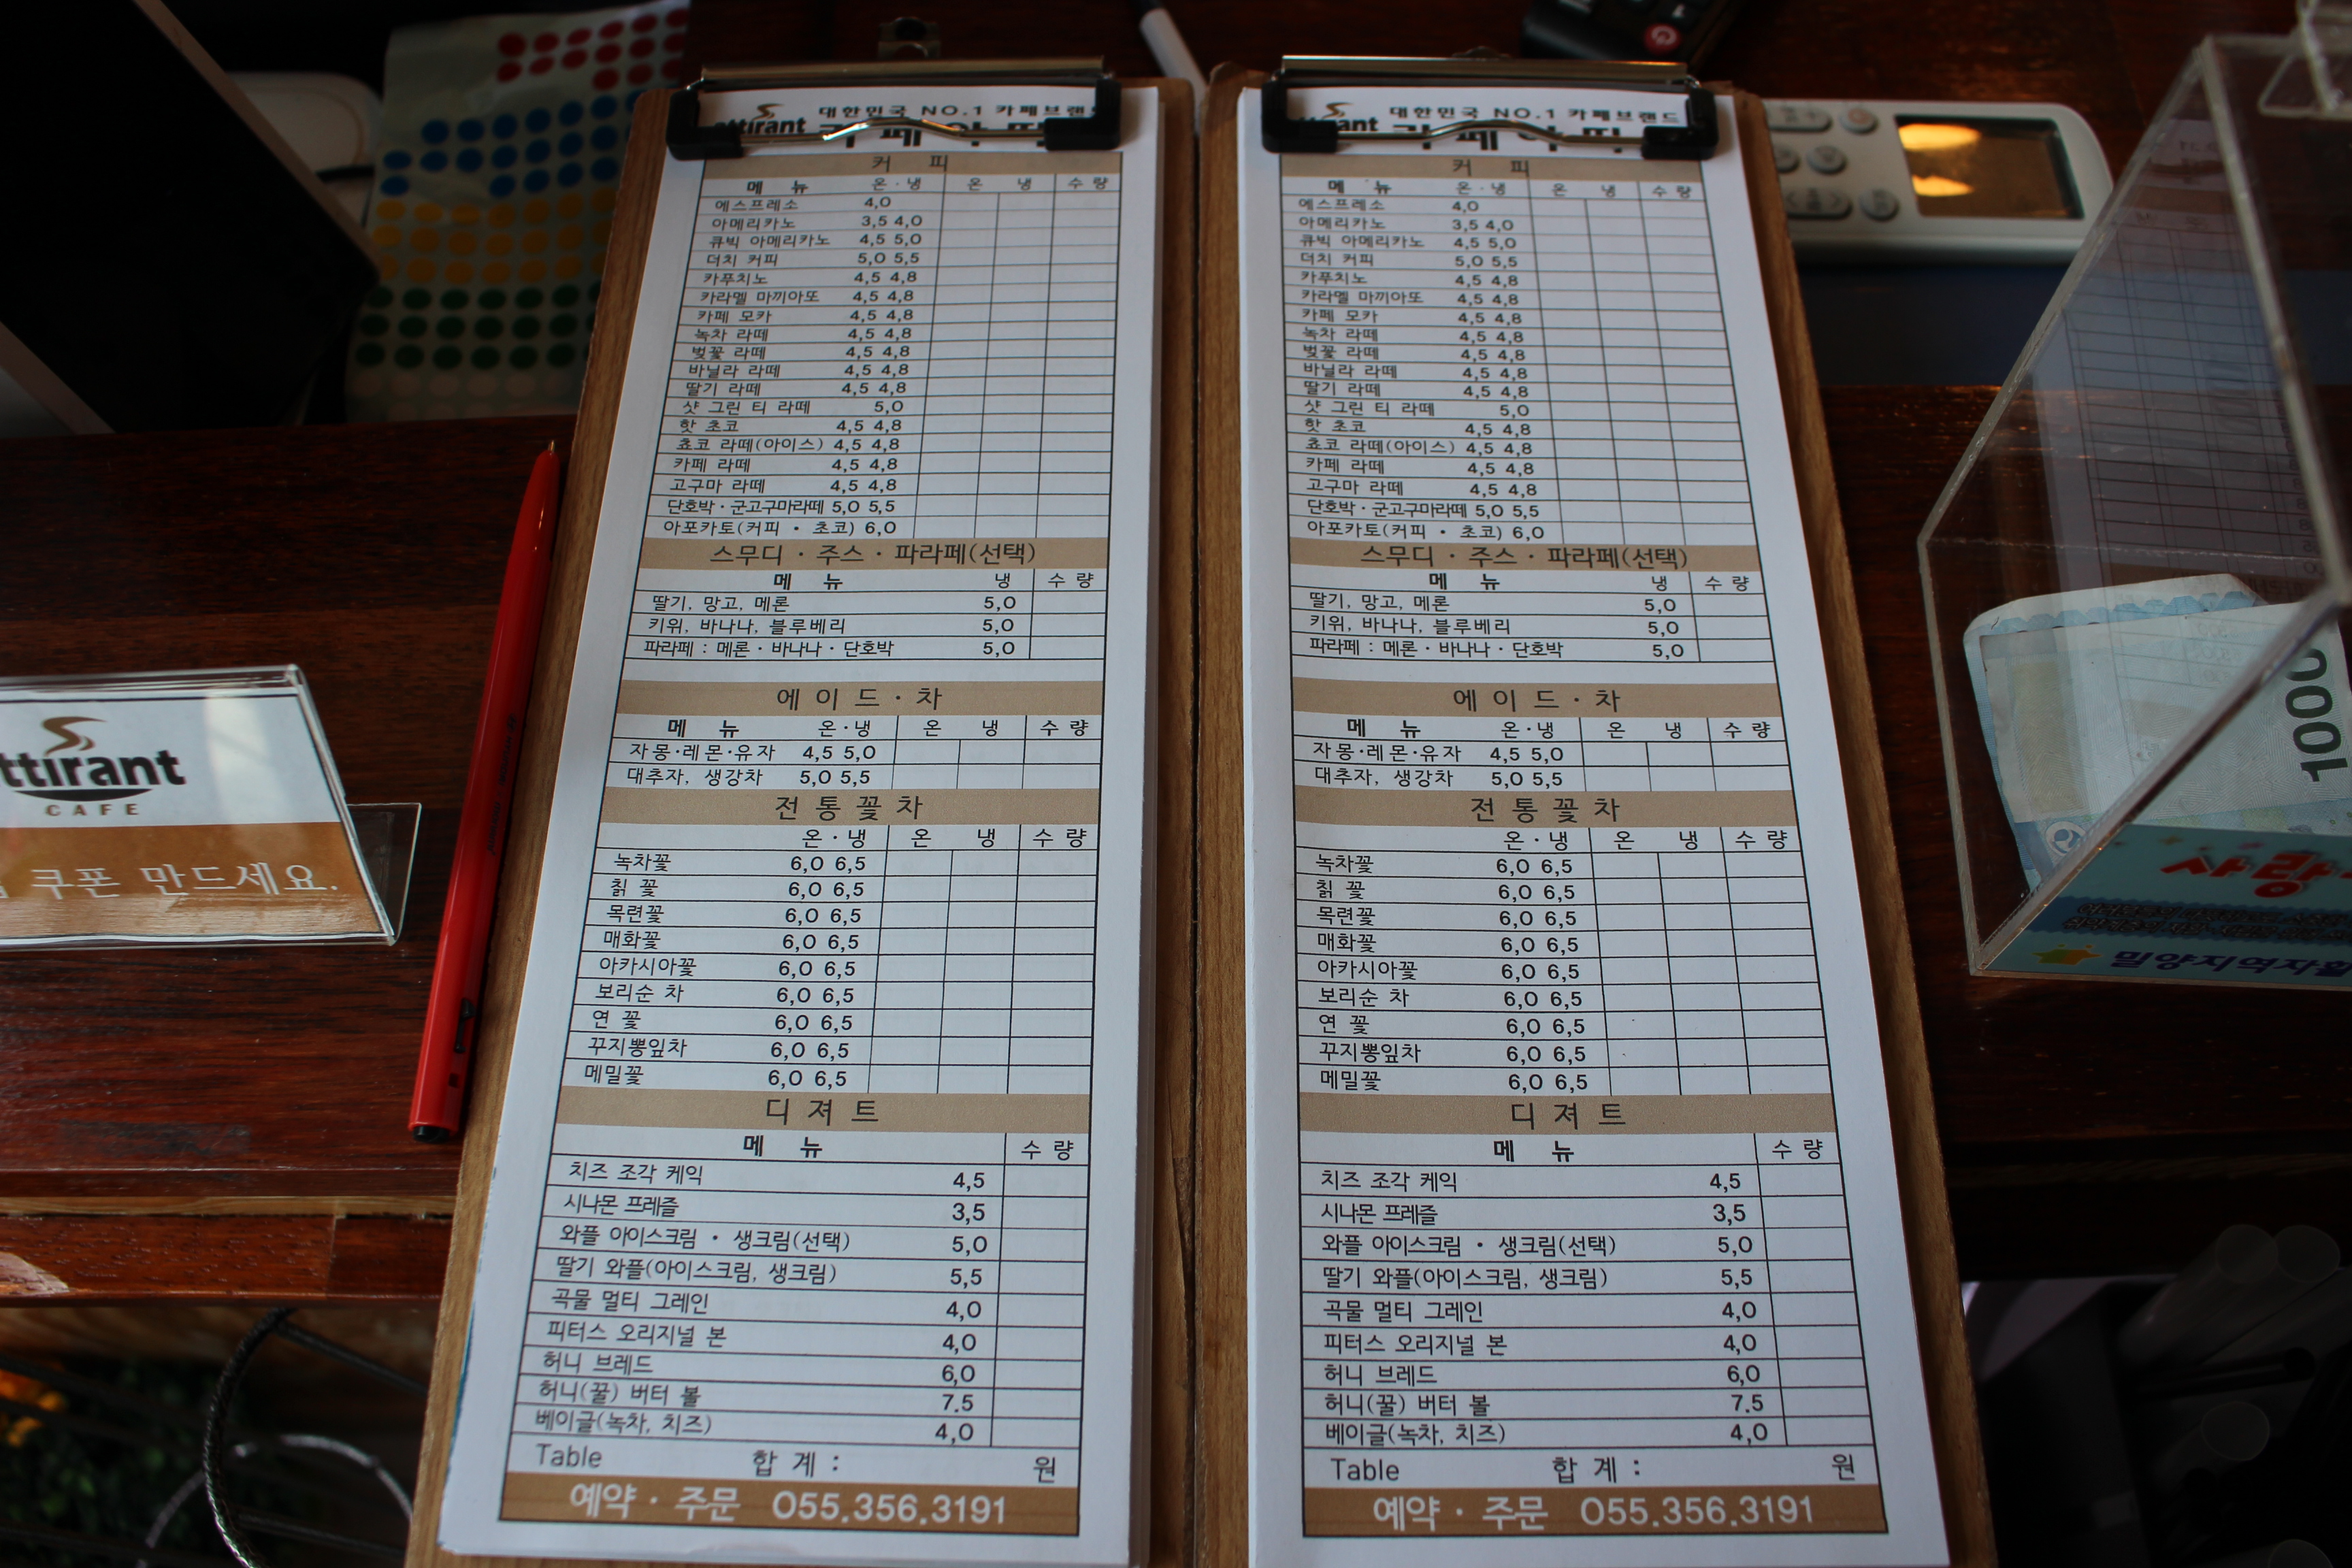 대한민국 NO.1 카페브랜드
ttirant
커 피
메 뉴 온·냉 온 냉 수량
에스프레소 4,0
아메리카노 3,5 4,0
큐빅 아메리카노 4,5 5,0
더치 커피 5,0 5,5
카푸치노 4,5 4,8
카라멜 마끼아또 4,5 4,8
카페 모카 4,5 4,8
녹차 라떼 4,5 4,8
벚꽃 라떼 4,5 4,8
바닐라 라떼 4,5 4,8
딸기 라떼 4,5 4,8
샷 그린 티 라떼 5,0
핫 초코 4,5 4,8
쵸코 라떼(아이스) 4,5 4,8
카페 라떼 4,5 4,8
고구마 라떼 4,5 4,8
단호박·군고구마라떼 5,0 5,5
아포카토(커피 · 초코) 6,0
스무디 · 주스 · 파라페(선택)
메 뉴 냉 수량
딸기, 망고, 메론 5,0
키위, 바나나, 블루베리 5,0
파라페 : 메론 · 바나나 · 단호박 5,0
에 이 드 · 차
메 뉴 온·냉 온 냉 수량
자몽·레몬·유자 4,5 5,0
대추자, 생강차 5,0 5,5
전 통 꽃 차
온·냉 온 냉 수량
녹차꽃 6,0 6,5
칡 꽃 6,0 6,5
목련꽃 6,0 6,5
매화꽃 6,0 6,5
아카시아꽃 6,0 6,5
보리순 차 6,0 6,5
연 꽃 6,0 6,5
꾸지뽕잎차 6,0 6,5
메밀꽃 6,0 6,5
디 져 트
메 뉴 수량
치즈 조각 케익 4,5
시나몬 프레즐 3,5
와플 아이스크림 · 생크림(선택) 5,0
딸기 와플(아이스크림, 생크림) 5,5
곡물 멀티 그레인 4,0
피터스 오리지널 본 4,0
허니 브레드 6,0
허니(꿀) 버터 볼 7.5
베이글(녹차, 치즈) 4,0
Table 합 계 : 원
예약 · 주문 055.356.3191
대한민국 NO.1 카페브랜드
커 피
메 뉴 온·냉 온 냉 수량
에스프레소 4,0
아메리카노 3,5 4,0
큐빅 아메리카노 4,5 5,0
더치 커피 5,0 5,5
카푸치노 4,5 4,8
카라멜 마끼아또 4,5 4,8
카페 모카 4,5 4,8
녹차 라떼 4,5 4,8
벚꽃 라떼 4,5 4,8
바닐라 라떼 4,5 4,8
딸기 라떼 4,5 4,8
샷 그린 티 라떼 5,0
핫 초코 4,5 4,8
쵸코 라떼(아이스) 4,5 4,8
카페 라떼 4,5 4,8
고구마 라떼 4,5 4,8
단호박·군고구마라떼 5,0 5,5
아포카토(커피 · 초코) 6,0
스무디 · 주스 · 파라페(선택)
메 뉴 냉 수량
딸기, 망고, 메론 5,0
키위, 바나나, 블루베리 5,0
파라페 : 메론 · 바나나 · 단호박 5,0
에 이 드 · 차
메 뉴 온·냉 온 냉 수량
자몽·레몬·유자 4,5 5,0
대추자, 생강차 5,0 5,5
전 통 꽃 차
온·냉 온 냉 수량
녹차꽃 6,0 6,5
칡 꽃 6,0 6,5
목련꽃 6,0 6,5
매화꽃 6,0 6,5
아카시아꽃 6,0 6,5
보리순 차 6,0 6,5
연 꽃 6,0 6,5
꾸지뽕잎차 6,0 6,5
메밀꽃 6,0 6,5
디 져 트
메 뉴 수량
치즈 조각 케익 4,5
시나몬 프레즐 3,5
와플 아이스크림 · 생크림(선택) 5,0
딸기 와플(아이스크림, 생크림) 5,5
곡물 멀티 그레인 4,0
피터스 오리지널 본 4,0
허니 브레드 6,0
허니(꿀) 버터 볼 7.5
베이글(녹차, 치즈) 4,0
Table 합 계 : 원
예약 · 주문 055.356.3191
ttirant
CAFE
쿠폰 만드세요.
1000
사랑
밀양지역자활